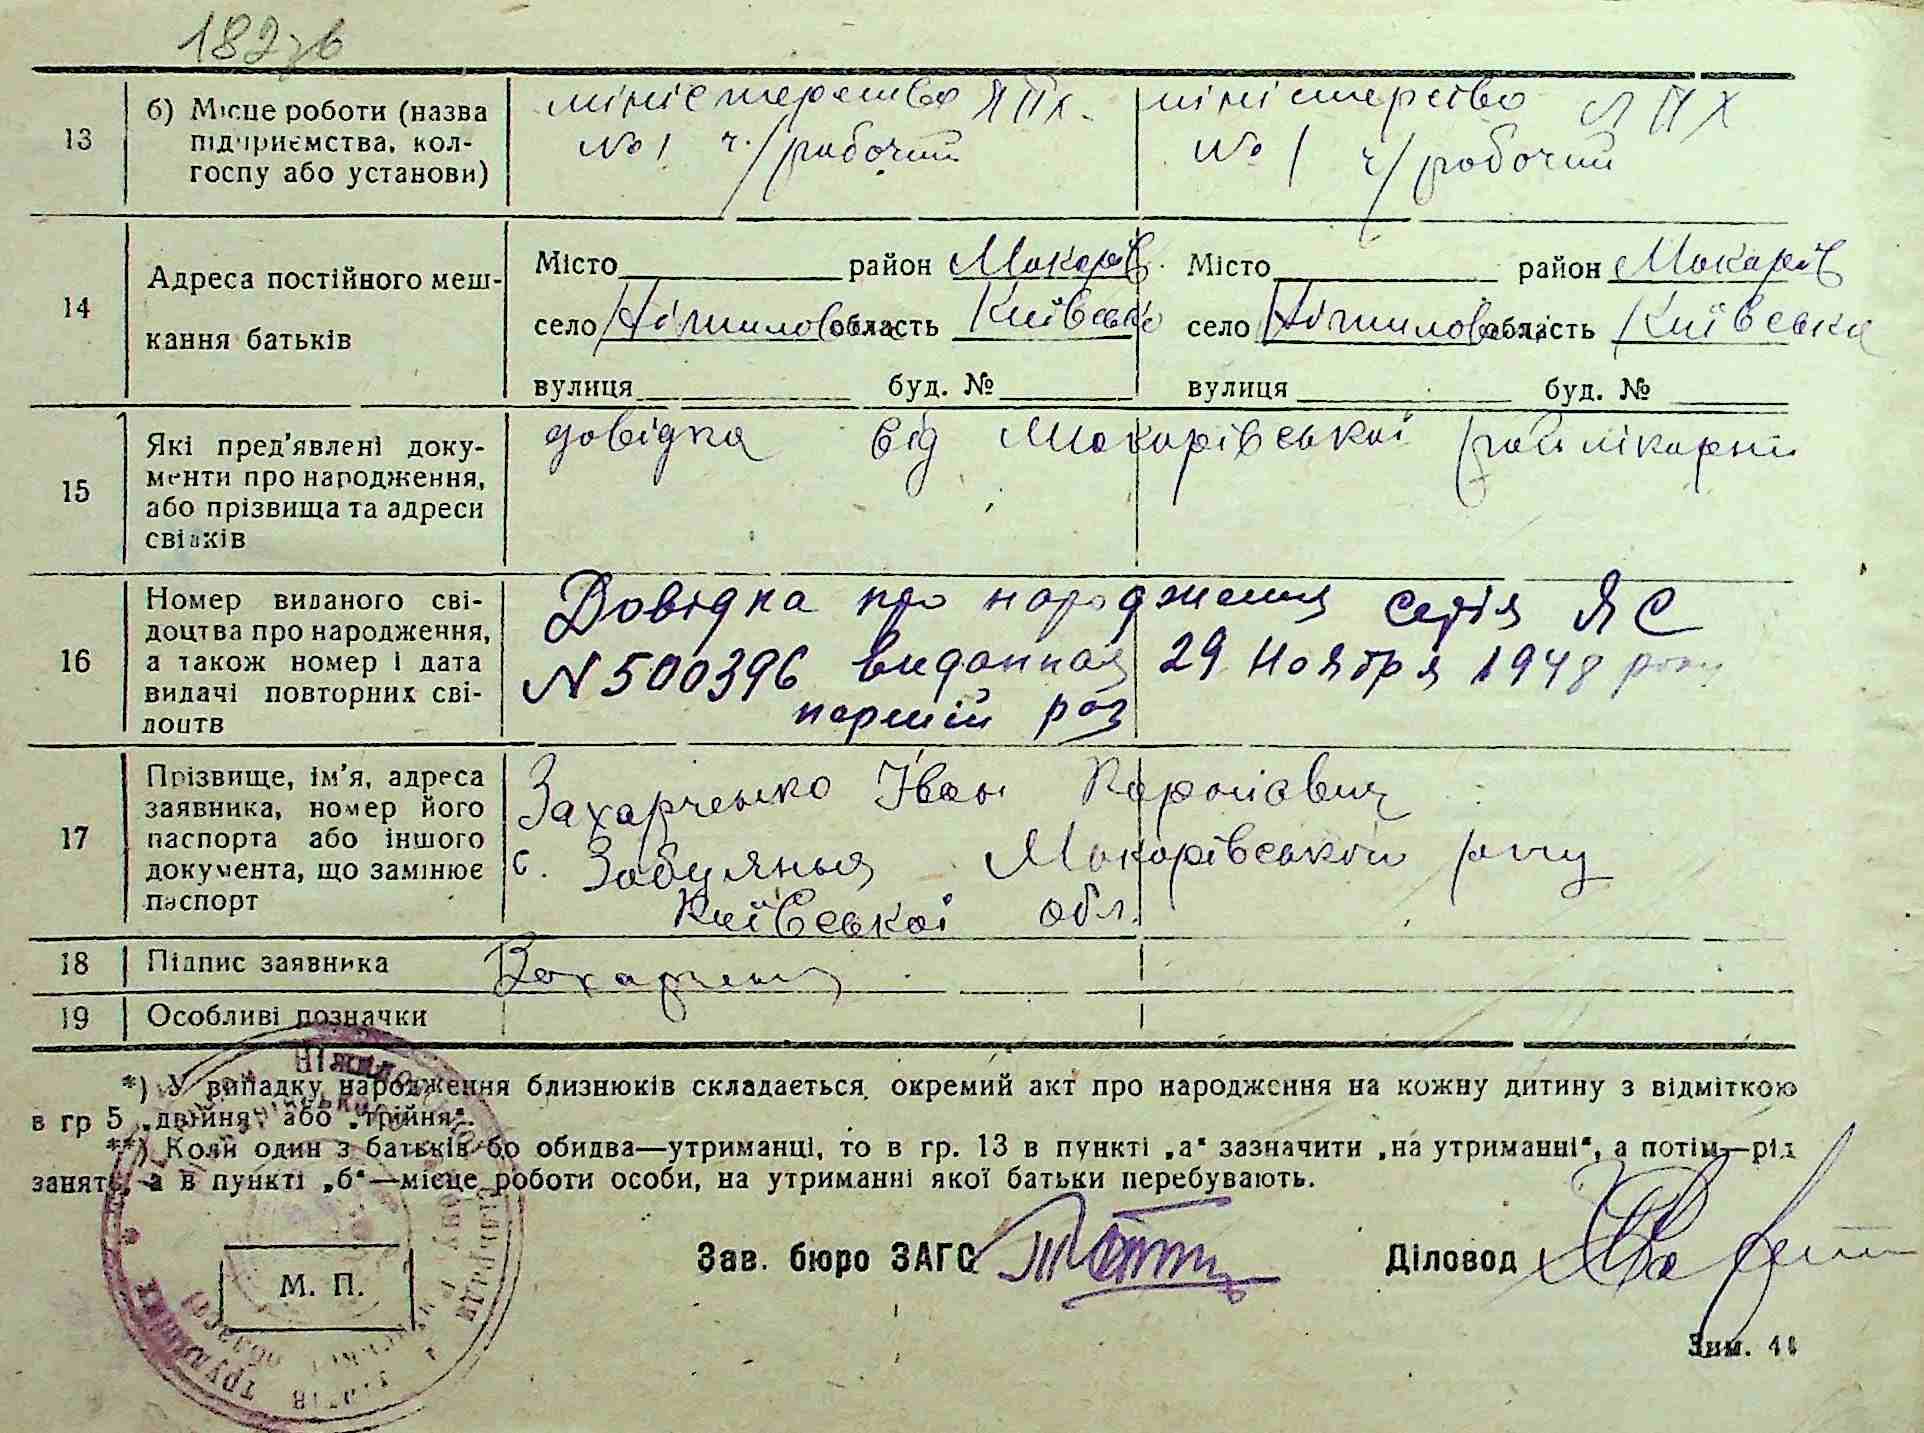 182зв
13 б) Місце роботи (назва підприємства, колгоспу або установи)
міністерство ЛПХ. міністерство ЛПХ
№1 ч/рабочий №1 ч/рабочий
14 Адреса постійного мешкання батьків
Місто район Макарів. Місто район Макарів
село Ніжиловочка область Київська село Ніжиловочка область Київська
вулиця буд. № вулиця буд. №
15 Які пред'явлені документи про народження, або прізвища та адреси свідків
довідка від Макарівської райлікарні
16 Номер виданого свідоцтва про народження, а також номер і дата видачі повторних свідоцтв
Довідка про народження серія ЯС
N 500396 виданная 29 Ноября 1948 року
перший раз
17 Прізвище, ім'я, адреса заявника, номер його паспорта або іншого документа, що замінює паспорт
Захарченко Іван
с. Забуяння Макарівського р-ну
Київської обл.
18 Підпис заявника
19 Особливі позначки
*) У випадку народження близнюків складається окремий акт про народження на кожну дитину з відміткою
в гр 5 „двійня" або „трійня".
**) Коли один з батьків бо обидва—утриманці, то в гр. 13 в пункті „а" зазначити „на утриманні", а потім—рід
занять, а в пункті „б"—місце роботи особи, на утриманні якої батьки перебувають.
Зав. бюро ЗАГС Діловод
М. П.
трудящих